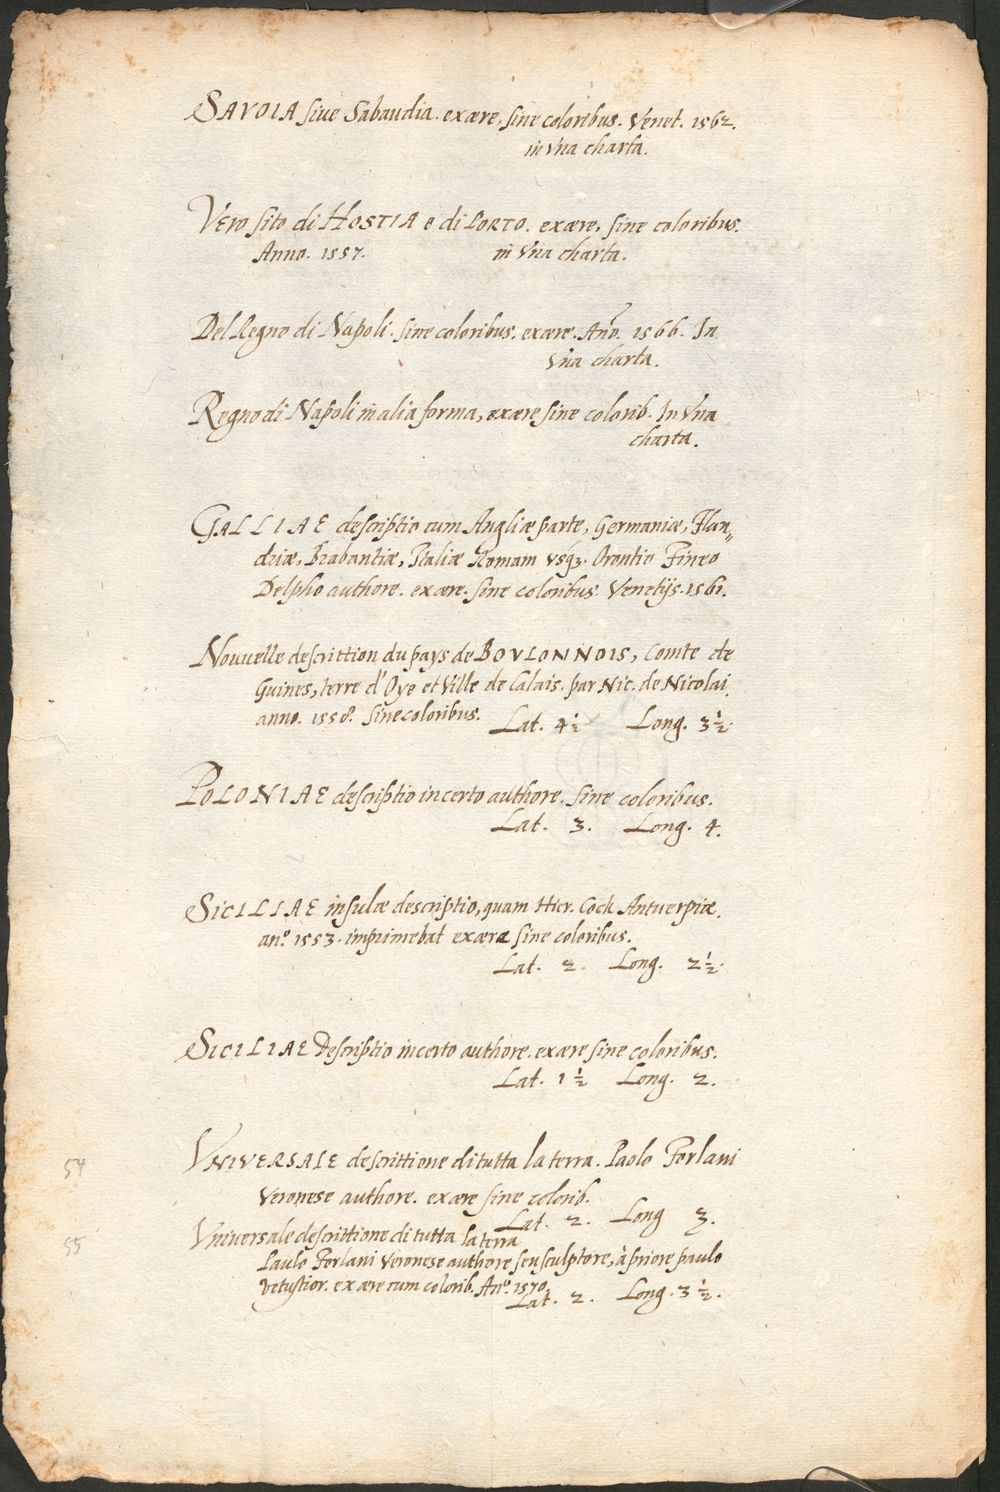 SAVOIA siue Sabaudia. ex ære, sine coloribus. Venet. 1562.
in vna charta.
Vero sito di HOSTIA e di PORTO. ex ære, sine coloribus.
Anno. 1557. in vna charta.
Del Regno di Napoli. sine coloribus. ex ære. Año. 1566. In
vna charta.
Regno di Napoli in alia forma, ex ære sine colorib. In vna
charta.
GALLIAE descriptio cum Angliæ parte, Germaniæ, Flan„
driæ, Brabantiæ, Italiæ Romam vsqꝫ. Orontio Fineo
Delphio authore. ex ære. sine coloribus. Venetijs. 1561.
Nouuelle descrittion du pays de BOVLONNOIS, Comte de
Guines, terre d'Oye et Ville de Calais. par Nic. de Nicolai.
anno. 1558. sine coloribus. Lat. 4 ½ Long. 3 ½.
POLONIAE descriptio incerto authore. sine coloribus.
Lat. 3. Long. 4.
SICILIAE insulæ descriptio, quam Hier. Cock Antuerpiæ.
an.º 1553. imprimebat ex æra sine coloribus.
Lat. 2. Long. 2 ½.
SICILIAE Descriptio incerto authore. ex ære sine coloribus.
Lat. 1 ½ Long. 2.
54 VNIVERSALE descrittione di tutta la terra. Paolo Forlani
Veronese authore. ex ære sine colorib.
Lat. 2. Long 3.
55 Vniversale descrittione di tutta la terra
Paulo Forlani Veronese authore seu sculptore, à priore paulo
vetustior. ex ære cum colorib. An.º 1570.
Lat. 2. Long. 3 ½.